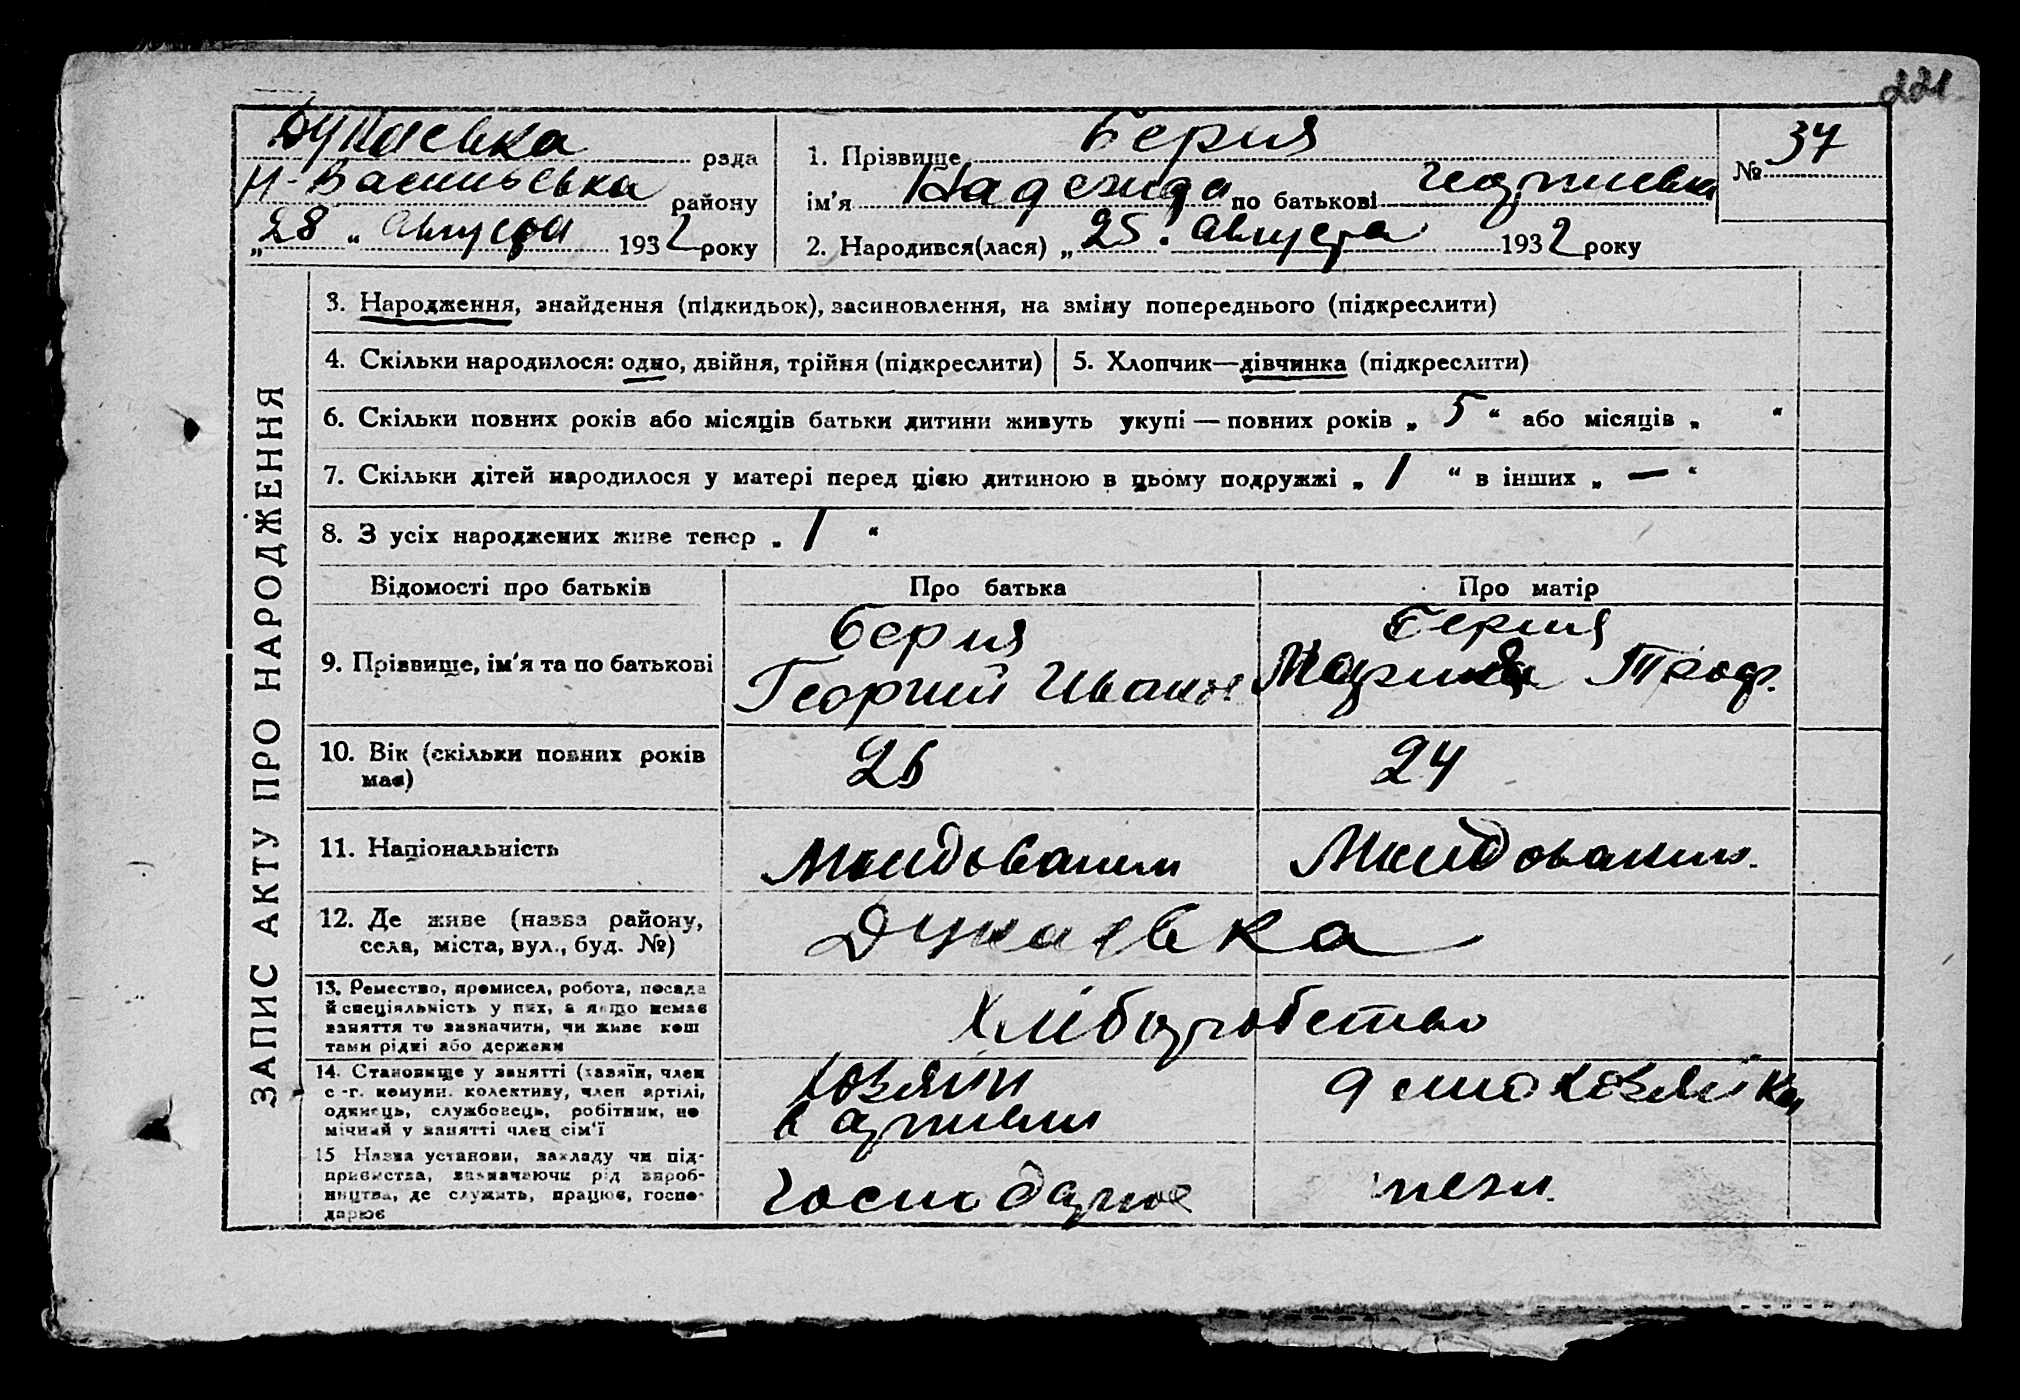 221
Дунаевка рада
Н-Васильевка району
„28“ Августа 1932 року
1. Прізвище Берия
ім'я Надежда по батькові Георгиевна
№ 37
2. Народився(лася) „25“ Августа 1932 року
ЗАПИС АКТУ ПРО НАРОДЖЕННЯ
3. Народження, знайдення (підкидьок), засиновлення, на зміну попереднього (підкреслити)
4. Скільки народилося: одно, двійня, трійня (підкреслити)
5. Хлопчик—дівчинка (підкреслити)
6. Скільки повних років або місяців батьки дитини живуть укупі — повних років „ 5 “ або місяців „ “
7. Скільки дітей народилося у матері перед цією дитиною в цьому подружжі „ 1 “ в інших „ — “
8. З усіх народжених живе тепер „ 1 “
Відомості про батьків
Про батька
Про матір
9. Прізвище, ім'я та по батькові
Берия
Георгий Иванов
Берия
Мария Троф.
10. Вік (скільки повних років
має)
26
24
11. Національність
Молдованин
Молдованин.
12. Де живе (назва району,
села, міста, вул., буд. №)
Дунаевка
13. Ремество, промисел, робота, посада
й спеціяльність у них, а якщо немає
заняття то зазначити, чи живе кош
тами рідні або держави
Хліборобство
14. Становище у занятті (хазяїн, член
с.-г. комуни. колективу, член артілі,
одинець, службовець, робітник, по
мічний у занятті член сім'ї
хозяин
в артели
домохозяйка
15 Назва установи, закладу чи під-
приємства, зазначаючи рід вироб-
ництва, де служить, працює, госпо-
дарює